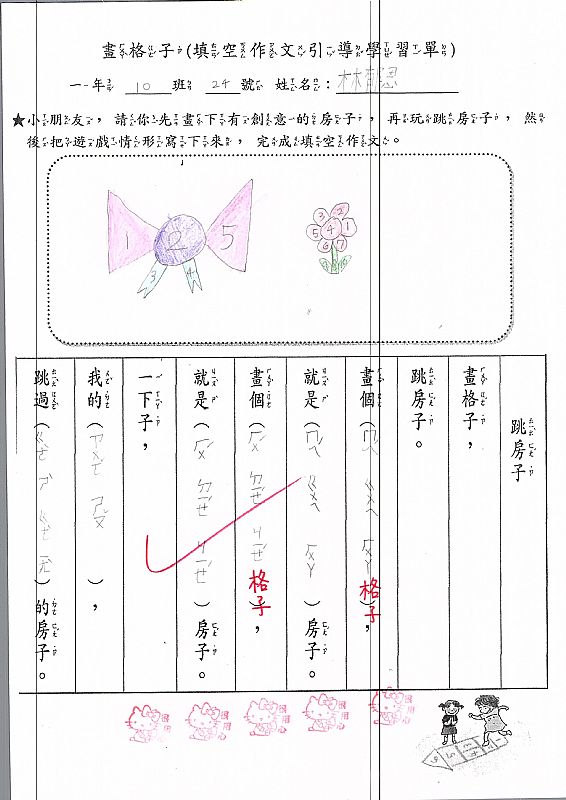 畫格子(填空作文引導學習單)
一年 10 班 24 號 姓名：林 恩
★小朋友，請你先畫下有創意的房子，再玩跳房子，然
後把遊戲情形寫下來，完成填空作文。
1 2 5
3 4
3 2
5 4 1
6 7
跳房子
畫格子，
跳房子。
畫個(ㄇㄟˊ ㄍㄨㄟ ㄏㄨㄚ 格子)，
就是(ㄇㄟˊ ㄍㄨㄟ ㄏㄨㄚ)房子。
畫個(ㄏㄨˊ ㄉㄧㄝˊ ㄐㄧㄝˊ 格子)，
就是(ㄏㄨˊ ㄉㄧㄝˊ ㄐㄧㄝˊ)房子。
一下子，
我的( )，
跳過( )的房子。
很用心
很用心
很用心
很用心
很用心